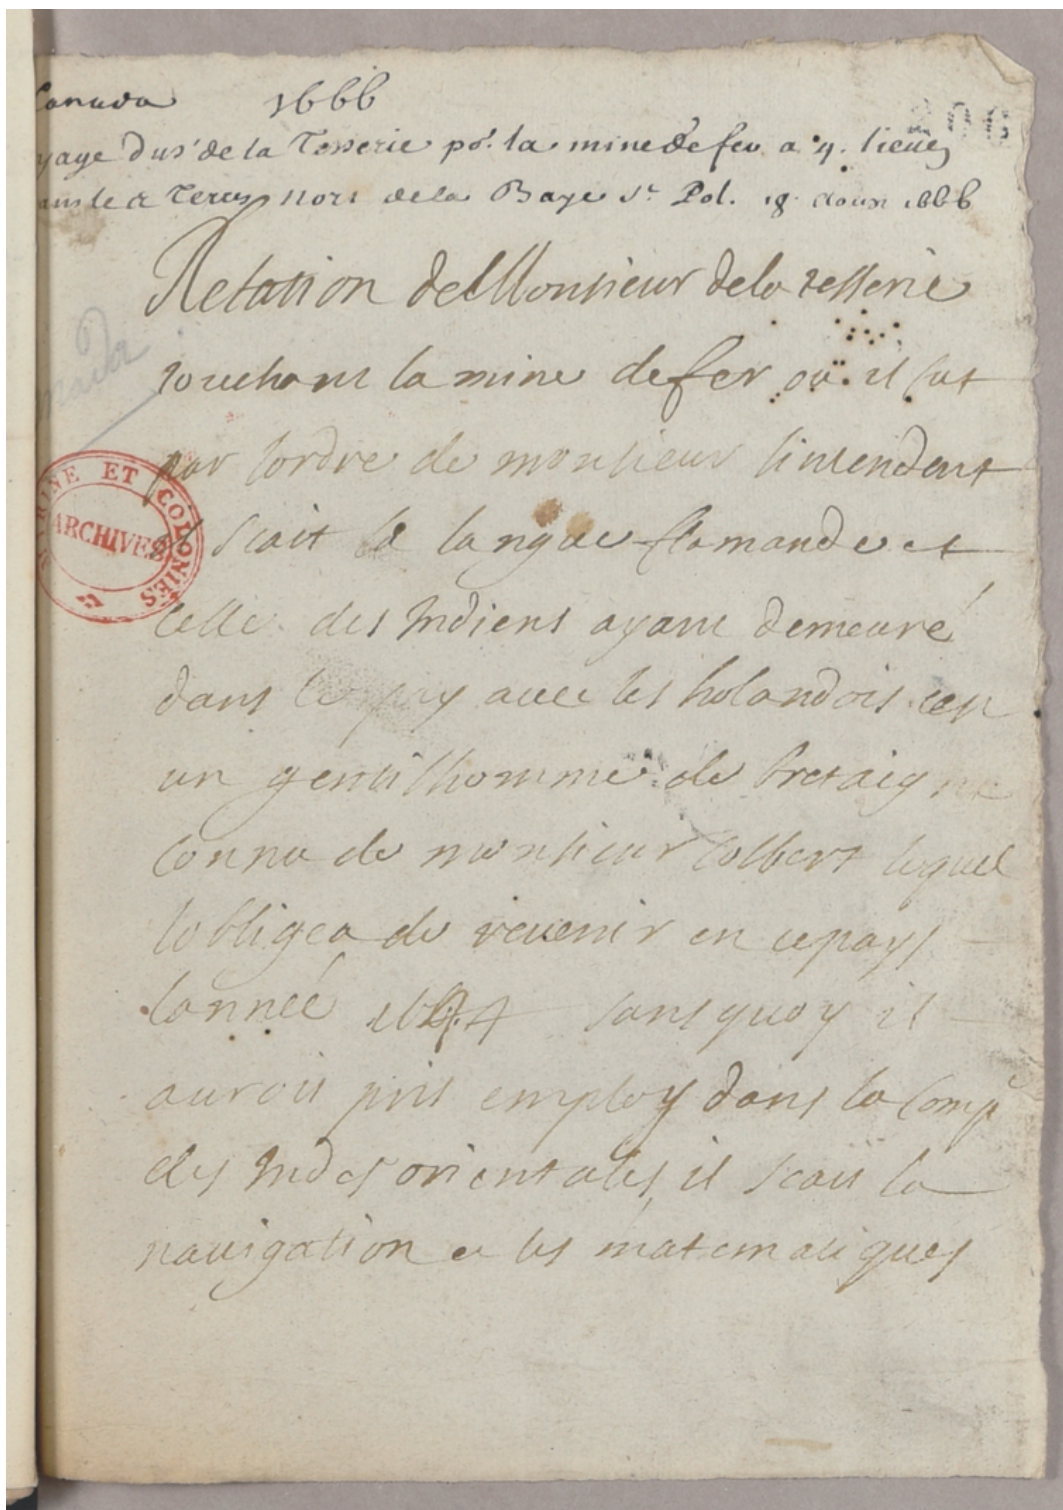 Canada 1666
yage du sr de la Tesserie pr. la mine de fer a 4. lieues
dans les Terres Nort de la Baye St. Pol. 18 aoust 1666
Relation de Monsieur de la tesserie
touchant la mine de fer ou il fut
par l'ordre de monsieur l'intendent
il scait la langue flamande et
celle des Indiens ayant demeuré
dans le pay avec les holandois cest
un gentilhomme de bretaigne
connu de monsieur Colbert lequel
lobligea de revenir en ce pays
lanneé 1664 sans quoy il
auroit pris employ dans la Comp
des Indes orientales, il scait la
navigation et les matematiques
MARINE ET COLONIES
ARCHIVES